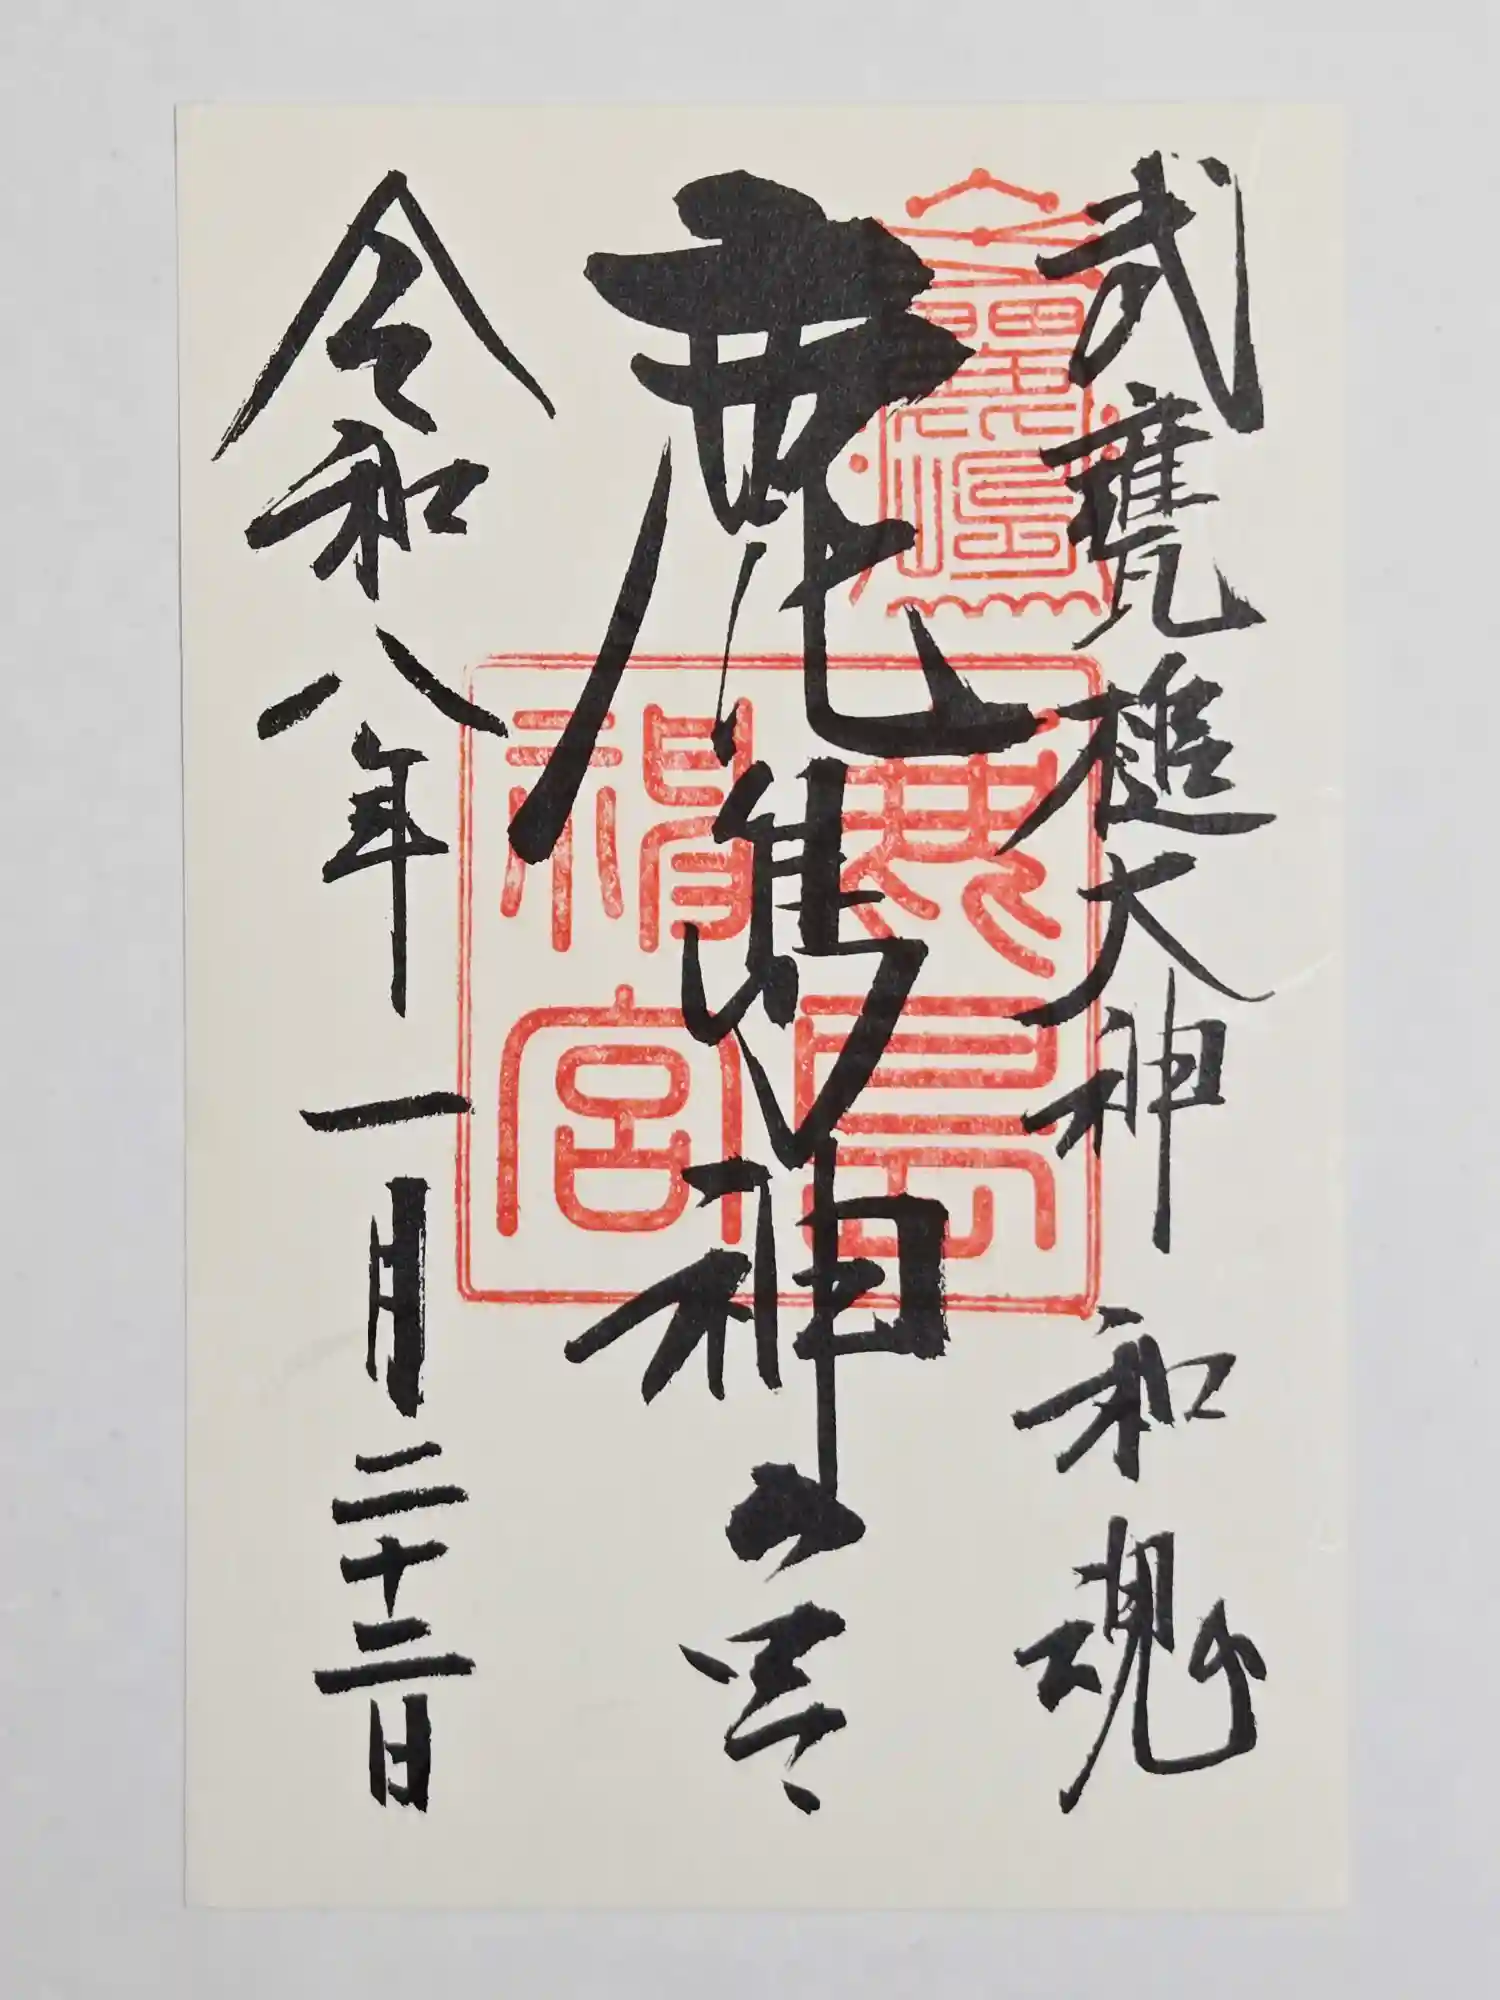 武甕槌大神 和魂
鹿島神宮
鹿島神宮
令和八年一月二十二日